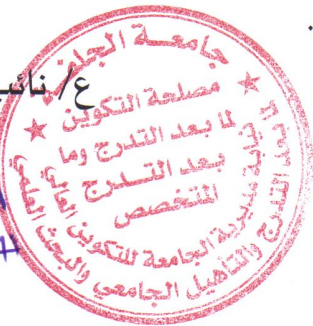 ع/ نائب
جامعــة الجل
مصلحة التكوين
لما بعد التدرج وما
بعد التــدرج
المتخصص
نيابة مديرية الجامعة للتكوين العالي
فيما بعد التدرج والتأهيل الجامعي والبحث العلمي